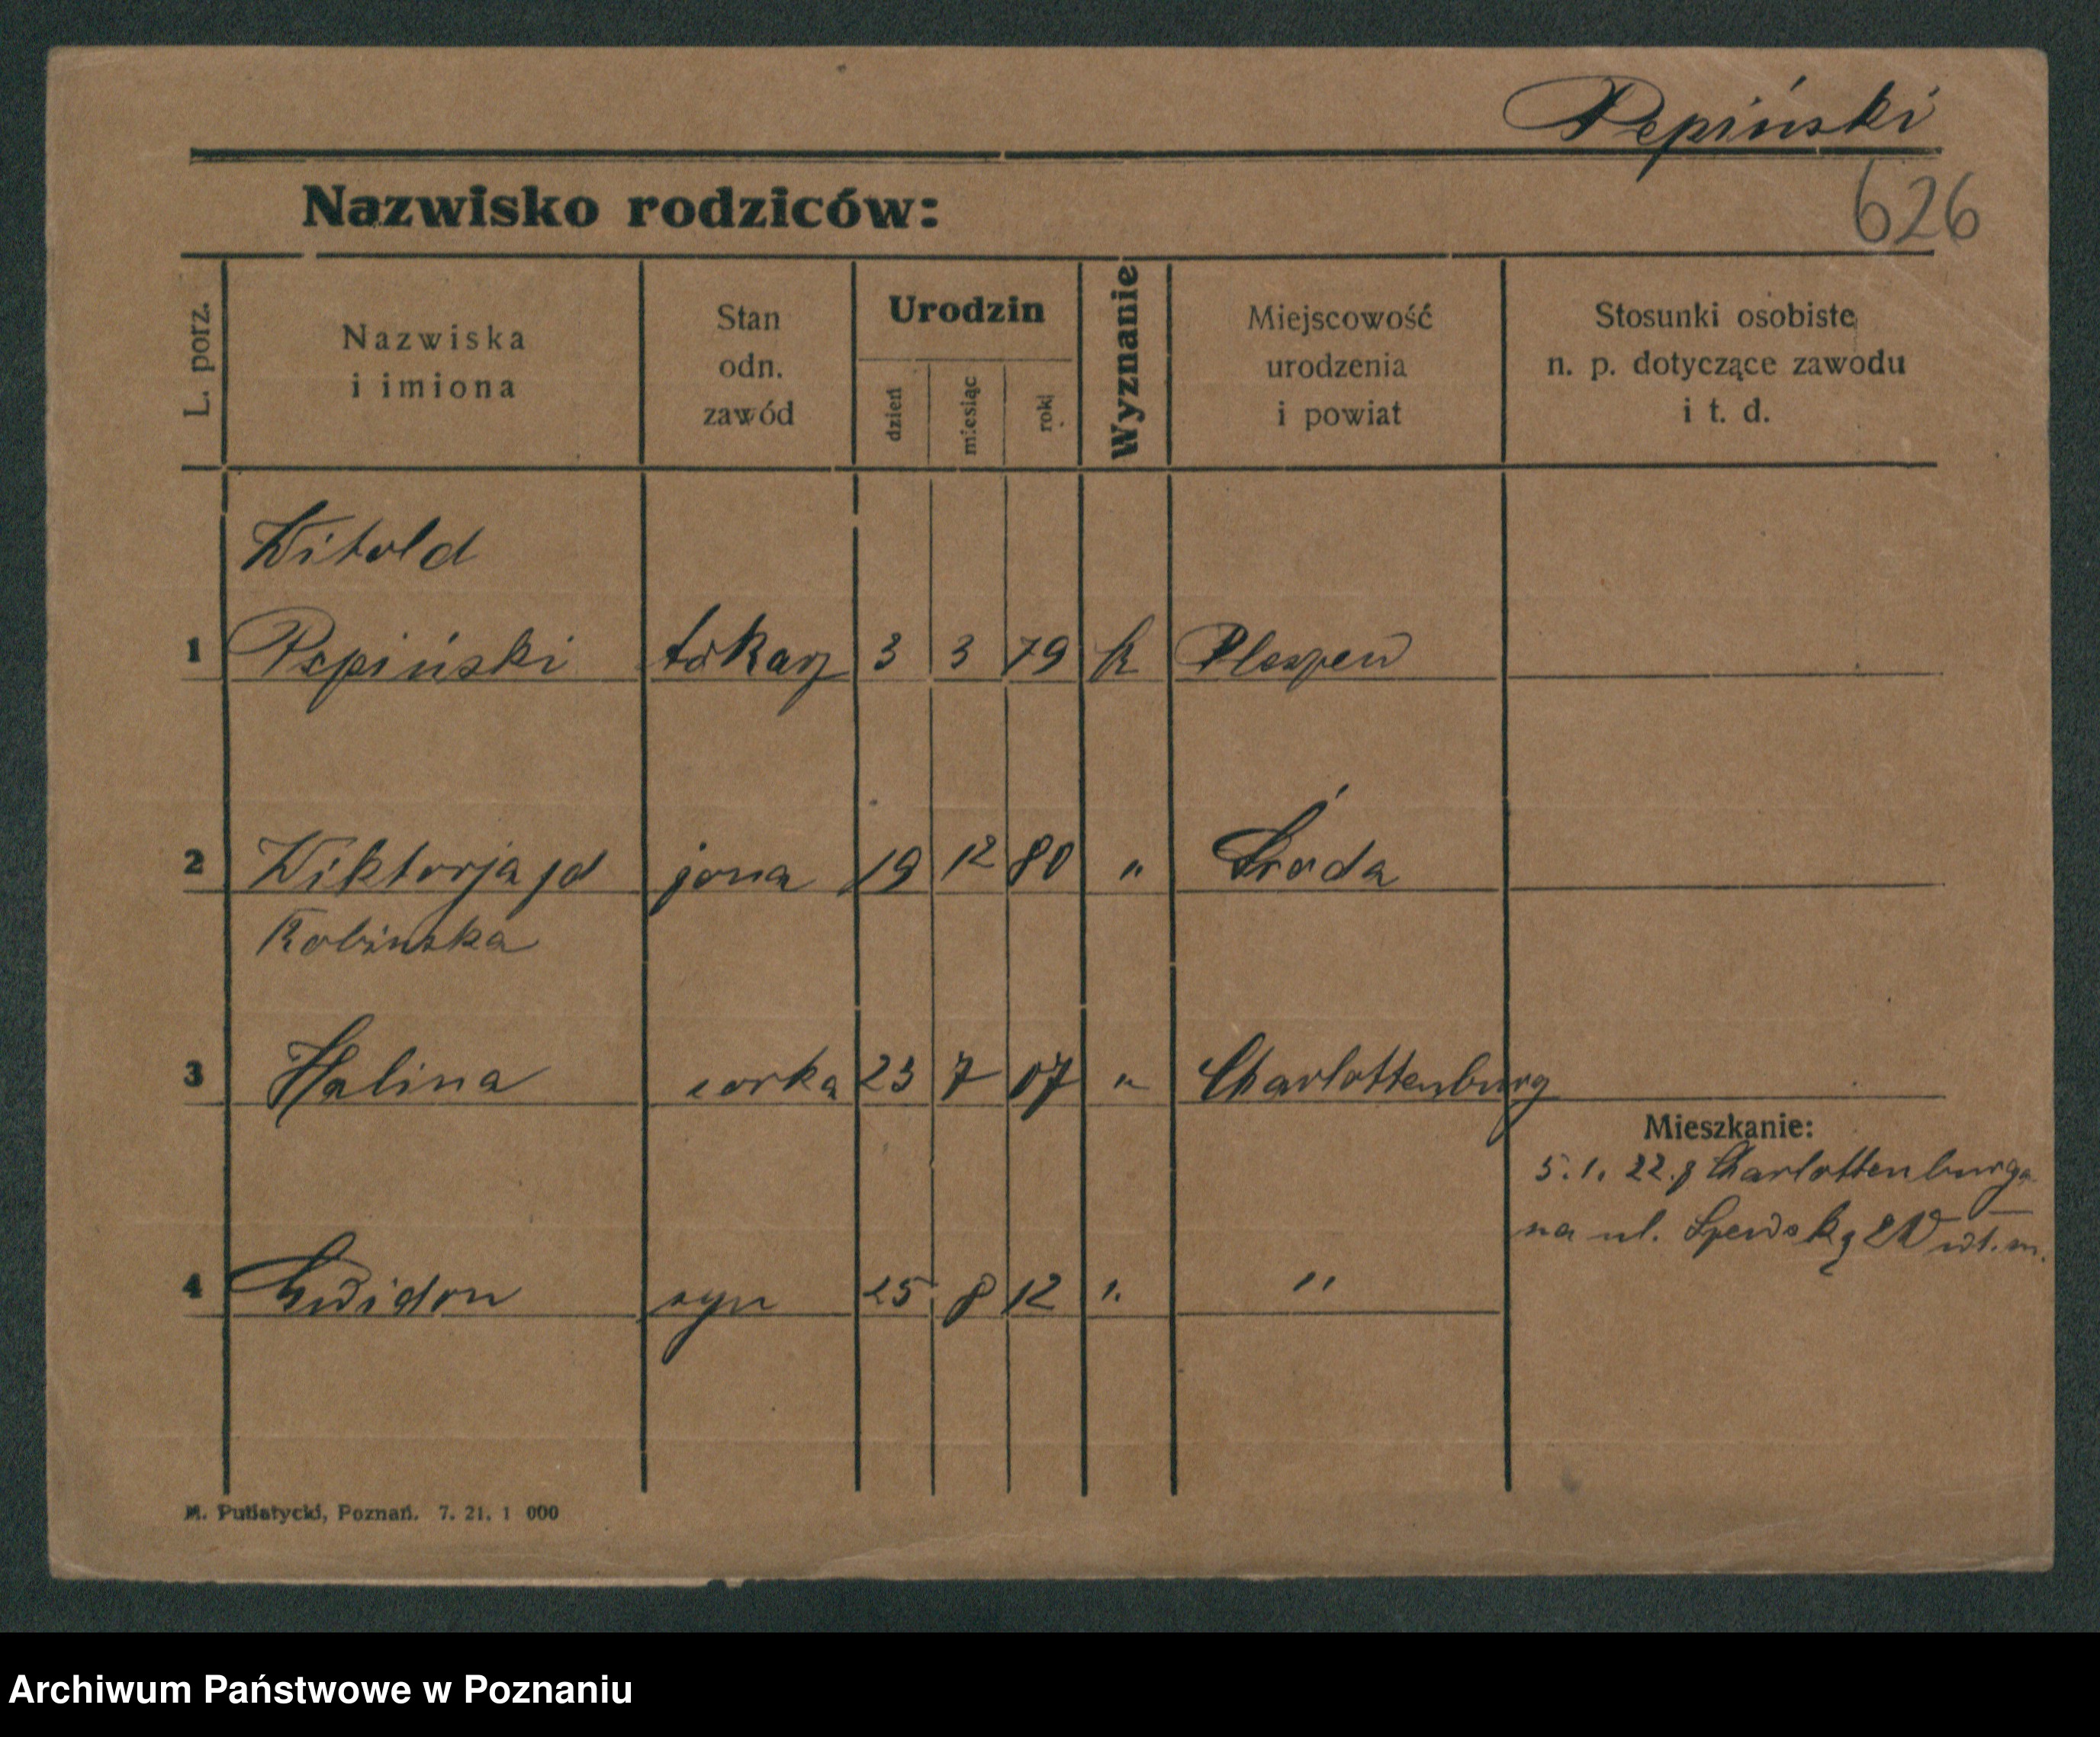 Pepiński
Nazwisko rodziców:
626
L. porz.
Nazwiska
i imiona
Stan
odn.
zawód
Urodzin
dzień
miesiąc
rok
Wyznanie
Miejscowość
urodzenia
i powiat
Stosunki osobiste
n. p. dotyczące zawodu
i t. d.
Witold
1 Pepiński tokarz 3 3 79 k Pleszew
2 Wiktorja zd żona 19 12 80 " Środa
Kobińska
3 Halina corka 23 7 07 " Charlottenburg
Mieszkanie:
5.1.22. z Charlottenburga
na ul.
4 Gwidon syn 25 8 12 " "
M. Putiatycki, Poznań. 7. 21. 1 000
Archiwum Państwowe w Poznaniu